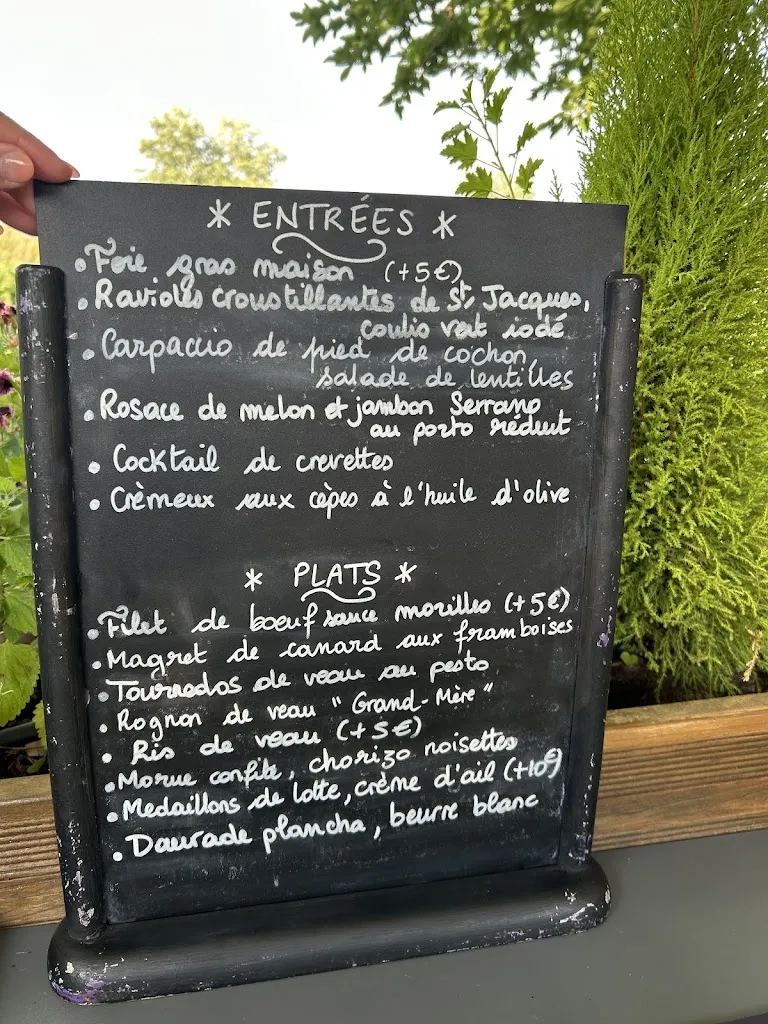 * ENTRÉES *
• Foie gras maison (+5€)
• Ravioles croustillantes de St Jacques,
coulis vert iodé
• Carpaccio de pied de cochon,
salade de lentilles
• Rosace de melon et jambon Serrano
au porto réduit
• Cocktail de crevettes
• Crèmeux aux cèpes à l'huile d'olive
* PLATS *
• Filet de boeuf sauce morilles (+5€)
• Magret de canard aux framboises
• Tournedos de veau au pesto
• Rognon de veau "Grand-Mère"
• Ris de veau (+5€)
• Morue confite, chorizo noisettes
• Medaillons de lotte, crème d'ail (+10€)
• Daurade plancha, beurre blanc